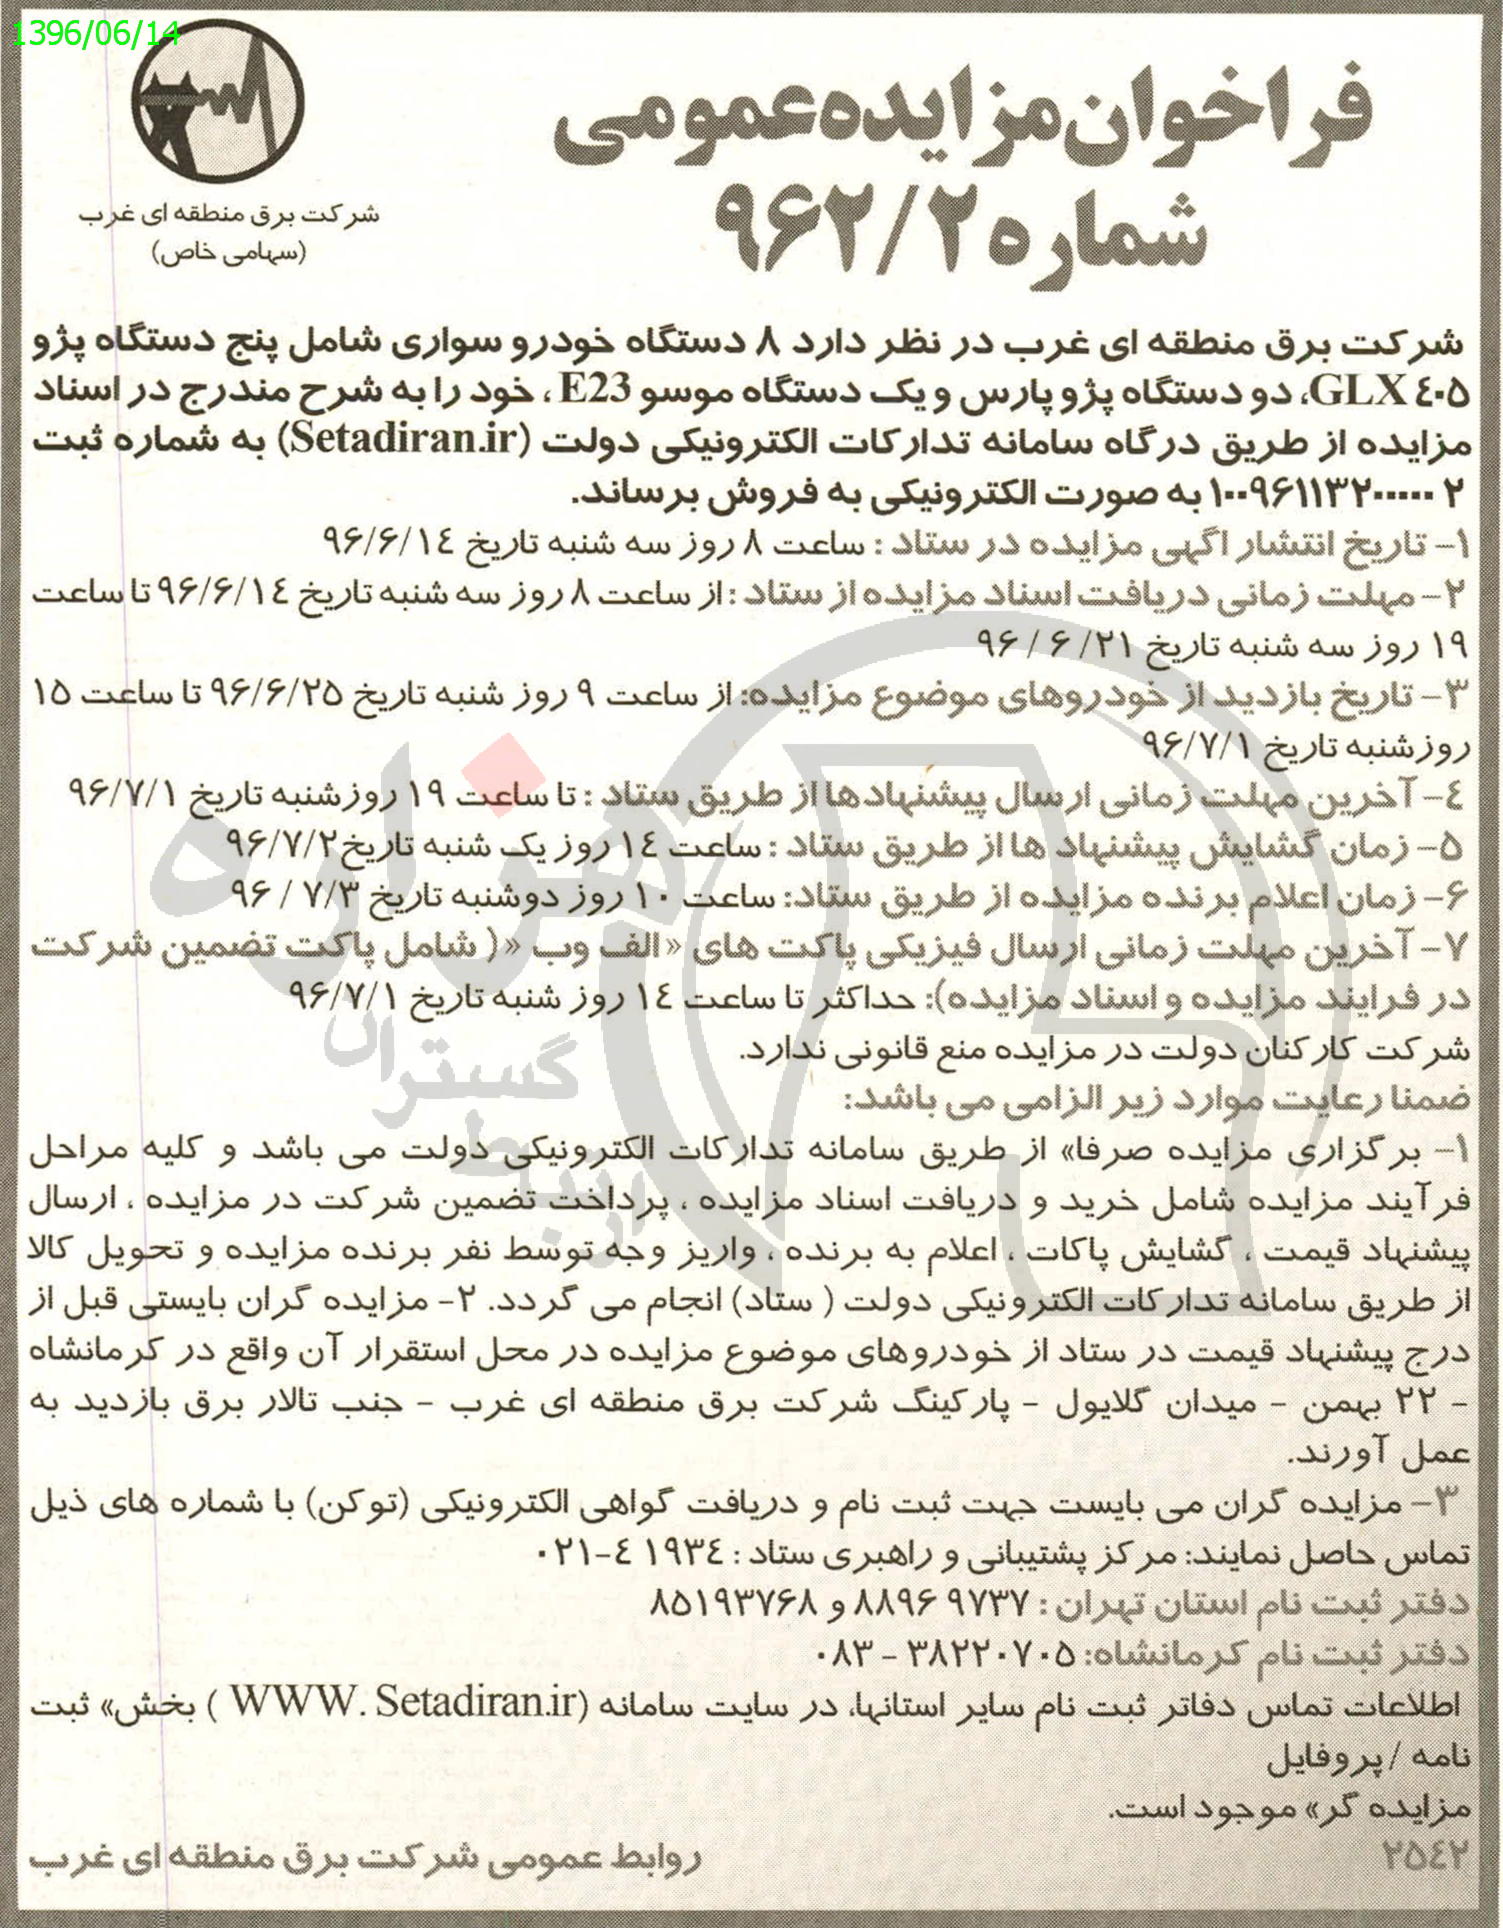 1396/06/14
شرکت برق منطقه ای غرب
(سهامی خاص)
فراخوان مزایده عمومی
شماره ۹۶۲/۲
شرکت برق منطقه ای غرب در نظر دارد ۸ دستگاه خودرو سواری شامل پنج دستگاه پژو
۴۰۵ GLX، دو دستگاه پژو پارس و یک دستگاه موسو E23 ، خود را به شرح مندرج در اسناد
مزایده از طریق درگاه سامانه تدارکات الکترونیکی دولت (Setadiran.ir) به شماره ثبت
۱۰۰۹۶۱۱۳۲۰۰۰۰۰۲ به صورت الکترونیکی به فروش برساند.
۱- تاریخ انتشار اگهی مزایده در ستاد : ساعت ۸ روز سه شنبه تاریخ ۹۶/۶/۱۴
۲- مهلت زمانی دریافت اسناد مزایده از ستاد : از ساعت ۸ روز سه شنبه تاریخ ۹۶/۶/۱۴ تا ساعت
۱۹ روز سه شنبه تاریخ ۲۱/ ۶ / ۹۶
۳- تاریخ بازدید از خودروهای موضوع مزایده: از ساعت ۹ روز شنبه تاریخ ۹۶/۶/۲۵ تا ساعت ۱۵
روز شنبه تاریخ ۹۶/۷/۱
۴- آخرین مهلت زمانی ارسال پیشنهادها از طریق ستاد : تا ساعت ۱۹ روز شنبه تاریخ ۹۶/۷/۱
۵- زمان گشایش پیشنهاد ها از طریق ستاد : ساعت ۱۴ روز یک شنبه تاریخ ۹۶/۷/۲
۶- زمان اعلام برنده مزایده از طریق ستاد: ساعت ۱۰ روز دوشنبه تاریخ ۷/۳ / ۹۶
۷- آخرین مهلت زمانی ارسال فیزیکی پاکت های «الف وب «( شامل پاکت تضمین شرکت
در فرایند مزایده و اسناد مزایده): حداکثر تا ساعت ۱۴ روز شنبه تاریخ ۹۶/۷/۱
شرکت کارکنان دولت در مزایده منع قانونی ندارد.
ضمنا رعایت موارد زیر الزامی می باشد:
۱- برگزاری مزایده صرفا» از طریق سامانه تدارکات الکترونیکی دولت می باشد و کلیه مراحل
فرآیند مزایده شامل خرید و دریافت اسناد مزایده ، پرداخت تضمین شرکت در مزایده ، ارسال
پیشنهاد قیمت ، گشایش پاکات ، اعلام به برنده ، واریز وجه توسط نفر برنده مزایده و تحویل کالا
از طریق سامانه تدارکات الکترونیکی دولت ( ستاد) انجام می گردد. ۲- مزایده گران بایستی قبل از
درج پیشنهاد قیمت در ستاد از خودروهای موضوع مزایده در محل استقرار آن واقع در کرمانشاه
- ۲۲ بهمن - میدان گلایول - پارکینگ شرکت برق منطقه ای غرب - جنب تالار برق بازدید به
عمل آورند.
۳- مزایده گران می بایست جهت ثبت نام و دریافت گواهی الکترونیکی (توکن) با شماره های ذیل
تماس حاصل نمایند: مرکز پشتیبانی و راهبری ستاد : ۱۹۳۴ ۴-۰۲۱
دفتر ثبت نام استان تهران : ۹۷۳۷ ۸۸۹۶ و ۸۵۱۹۳۷۶۸
دفتر ثبت نام کرمانشاه: ۳۸۲۲۰۷۰۵ - ۰۸۳
اطلاعات تماس دفاتر ثبت نام سایر استانها، در سایت سامانه (WWW. Setadiran.ir ) بخش» ثبت
نامه / پروفایل
مزایده گر» موجود است.
۲۵۴۲
روابط عمومی شرکت برق منطقه ای غرب
هزاره
گستران
ارتباط